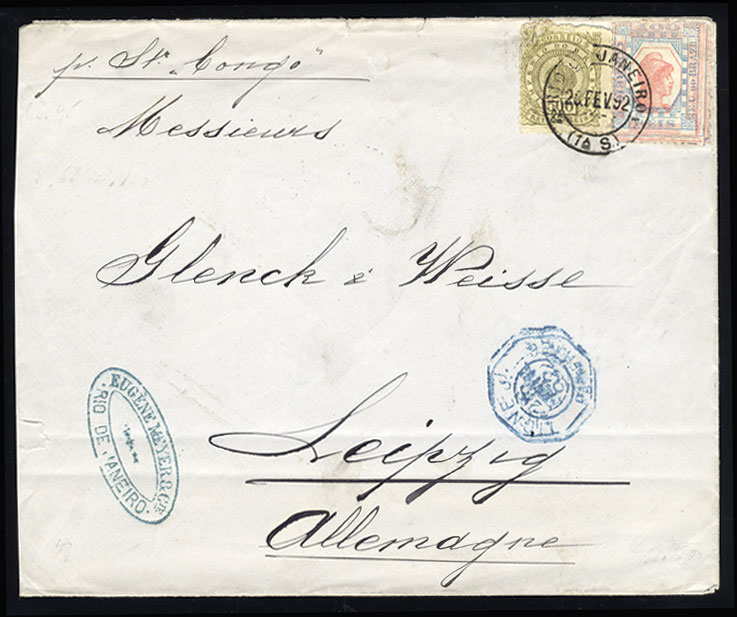 p. Str. „Congo"
Messieurs
Glenck & Weisse
Leipzig
Allemagne
CORREIO
RIO DE JANEIRO
26 FEV. 92
(1A S)
EUGÈNE MEYER & CIE
RIO DE JANEIRO
LIGNE J.